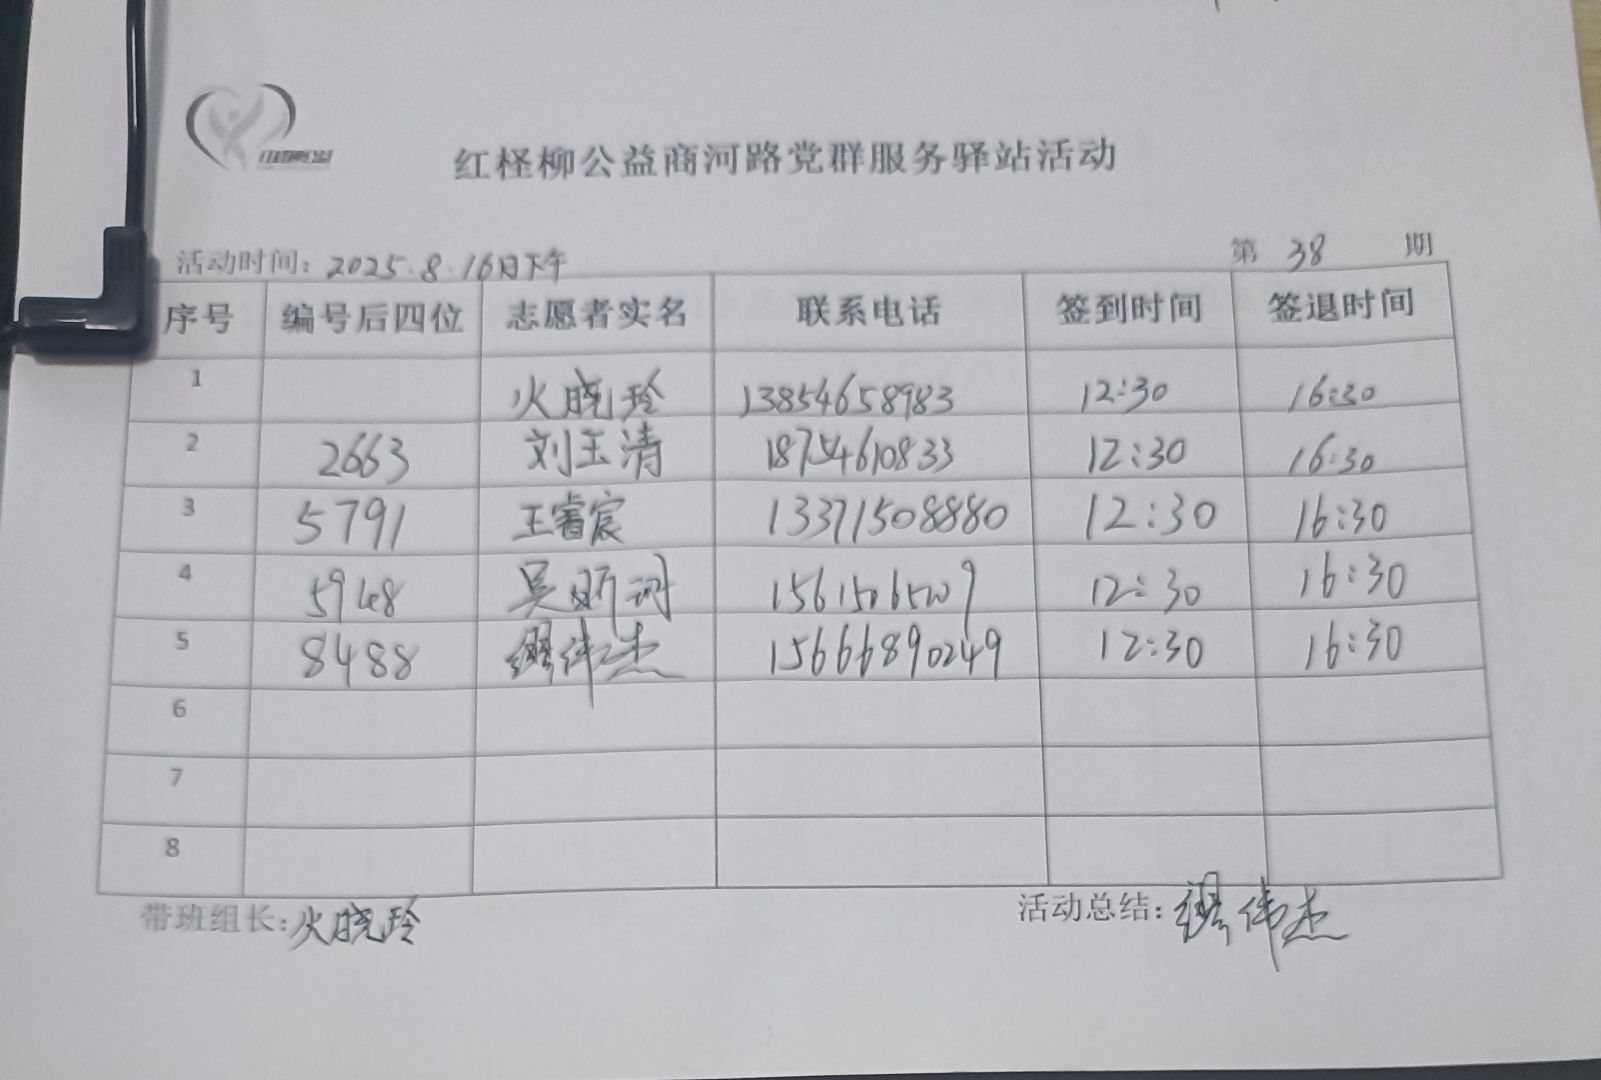 红柽柳公益商河路党群服务驿站活动
活动时间：2025.8.16日下午 第 38 期
序号 编号后四位 志愿者实名 联系电话 签到时间 签退时间
1 火晓玲 13854658983 12:30 16:30
2 2663 刘玉清 18754610833 12:30 16:30
3 5791 王睿宸 13371508880 12:30 16:30
4 5948 吴昕 12:30 16:30
5 8488 缪伟杰 15666890249 12:30 16:30
6
7
8
带班组长：火晓玲 活动总结：缪伟杰